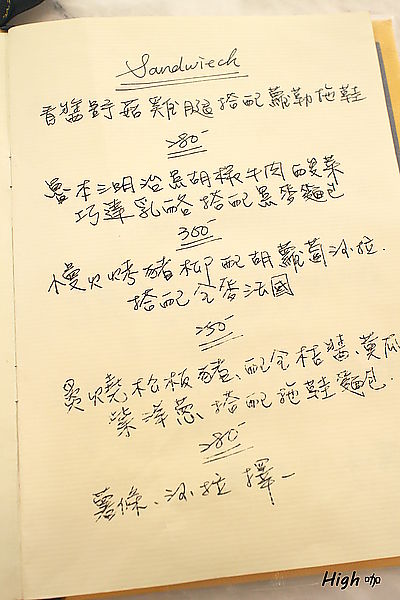 Sandwiech
青醬野菇雞腿搭配蘿勒拖鞋
280-
魯本三明治黑胡椒牛肉酸菜
巧達乳酪搭配黑麥麵包
300-
慢火烤豬柳配胡蘿蔔沙拉.
搭配全麥法國
250-
炙燒松板豬、配金桔醬、黃瓜
紫洋蔥搭配拖鞋麵包.
280-
薯條、沙拉擇一
High 咖